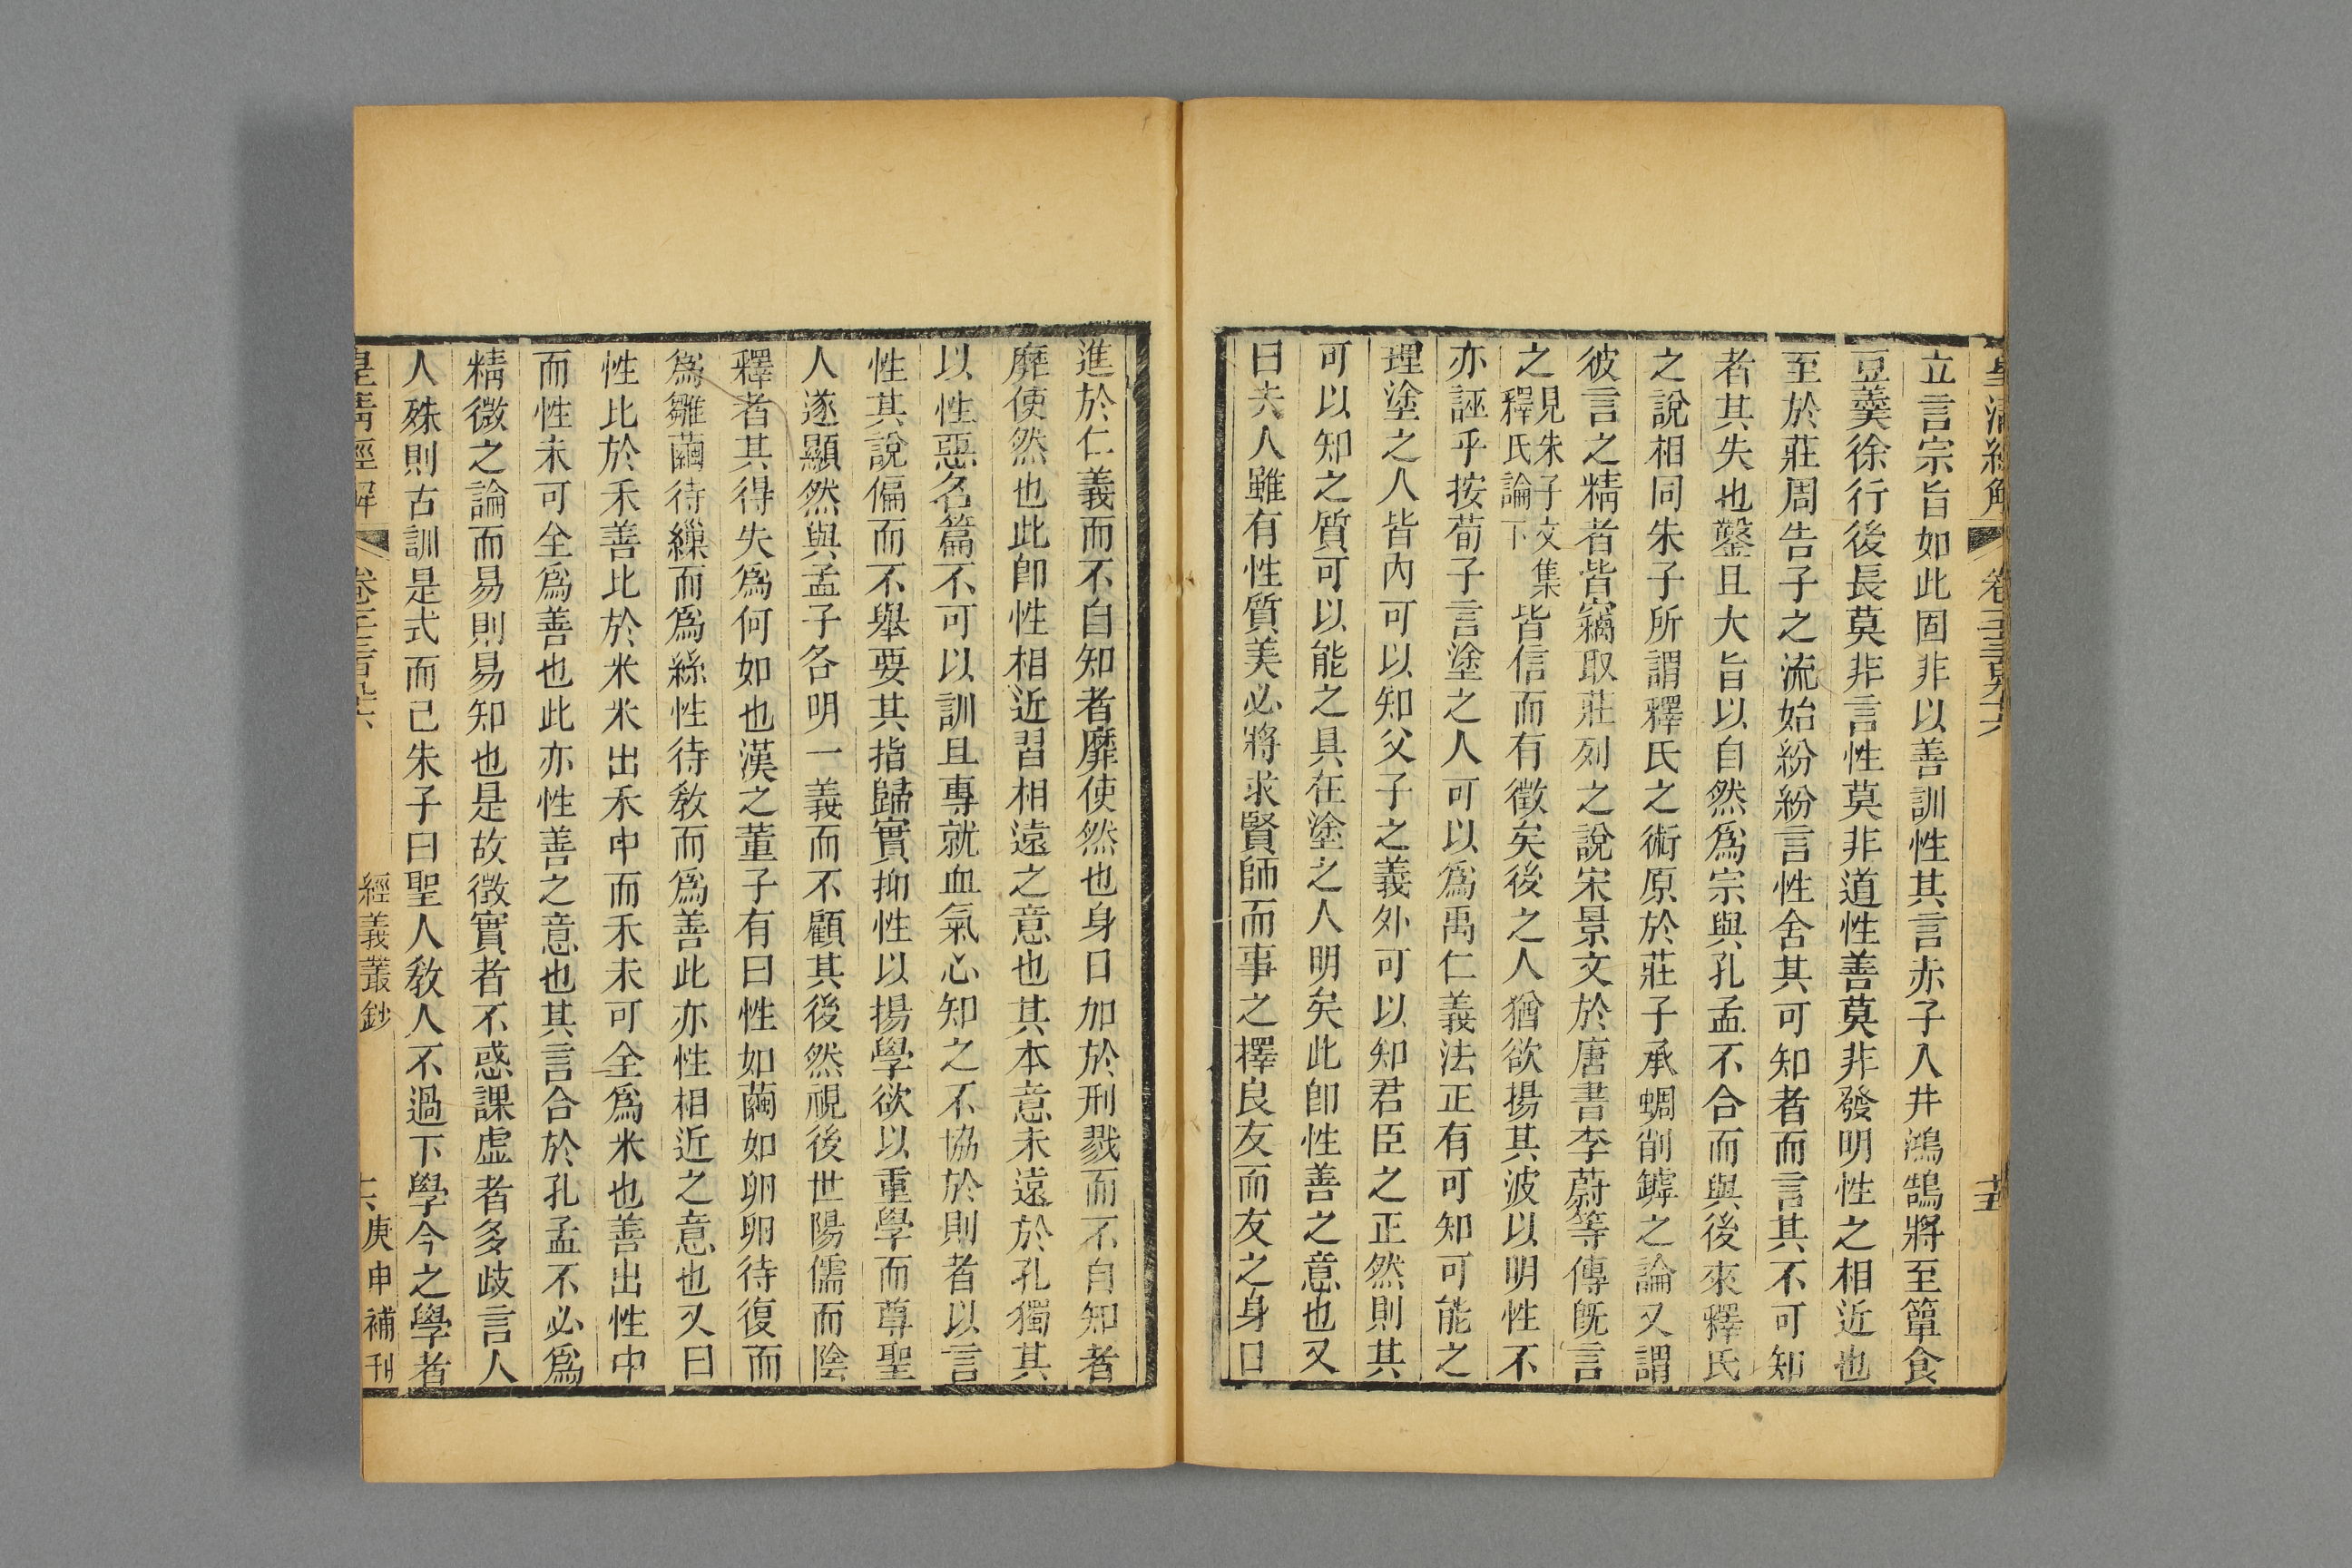 皇清經解
卷一千三百八十六
十五
立言宗旨如此固非以善訓性其言赤子入井鴻鵠將至簞食
豆羹徐行後長莫非言性莫非道性善莫非發明性之相近也
至於莊周告子之流始紛紛言性舍其可知者而言其不可知
者其失也鑿且大旨以自然爲宗與孔孟不合而與後來釋氏
之說相同朱子所謂釋氏之術原於莊子承蜩削鐻之論又謂
彼言之精者皆竊取莊列之說宋景文於唐書李蔚等傳旣言
之見朱子文集釋氏論下皆信而有徵矣後之人猶欲揚其波以明性不
亦誣乎按荀子言塗之人可以爲禹仁義法正有可知可能之
理塗之人皆內可以知父子之義外可以知君臣之正然則其
可以知之質可以能之具在塗之人明矣此卽性善之意也又
曰夫人雖有性質美必將求賢師而事之擇良友而友之身日
進於仁義而不自知者靡使然也身日加於刑戮而不自知者
靡使然也此卽性相近習相遠之意也其本意未遠於孔獨其
以性惡名篇不可以訓且專就血氣心知之不協於則者以言
性其說偏而不舉要其指歸實抑性以揚學欲以重學而尊聖
人遂顯然與孟子各明一義而不顧其後然視後世陽儒而陰
釋者其得失爲何如也漢之董子有曰性如繭如卵卵待復而
爲雛繭待繅而爲絲性待敎而爲善此亦性相近之意也又曰
性比於禾善比於米米出禾中而禾未可全爲米也善出性中
而性未可全爲善也此亦性善之意也其言合於孔孟不必爲
精微之論而易則易知也是故徵實者不惑課虛者多歧言人
人殊則古訓是式而已朱子曰聖人敎人不過下學今之學者
皇淸經解
經義叢鈔
十六
庚申補刊